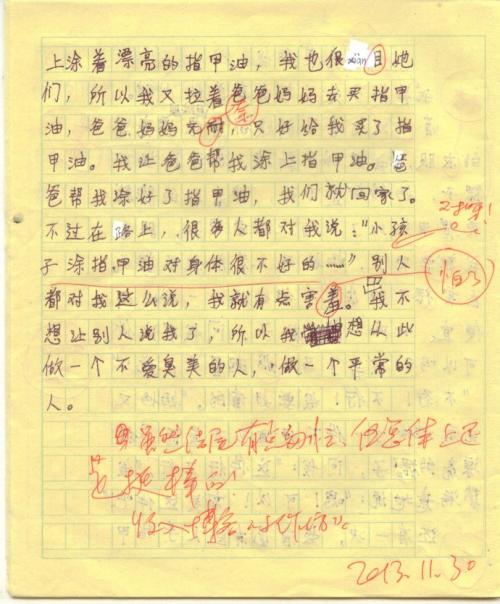 上涂着漂亮的指甲油，我也很xiàn目她
们，所以我又拉着爸爸妈妈去买指甲
油，爸爸妈妈无耐，只好给我买了指
甲油。我让爸爸帮我涂上指甲油。爸
爸帮我涂好了指甲油，我们就回家了。
不过在路上，很多人都对我说："小孩
子涂指甲油对身体很不好的……"别人
都对我这么说，我就有点害羞。我不
想让别人说我了，所以我想从此
做一个不爱臭美的人，做一个平常的
人。
虽然结尾有点 但总体上还
是挺棒的！
收入博客
2013.11.30